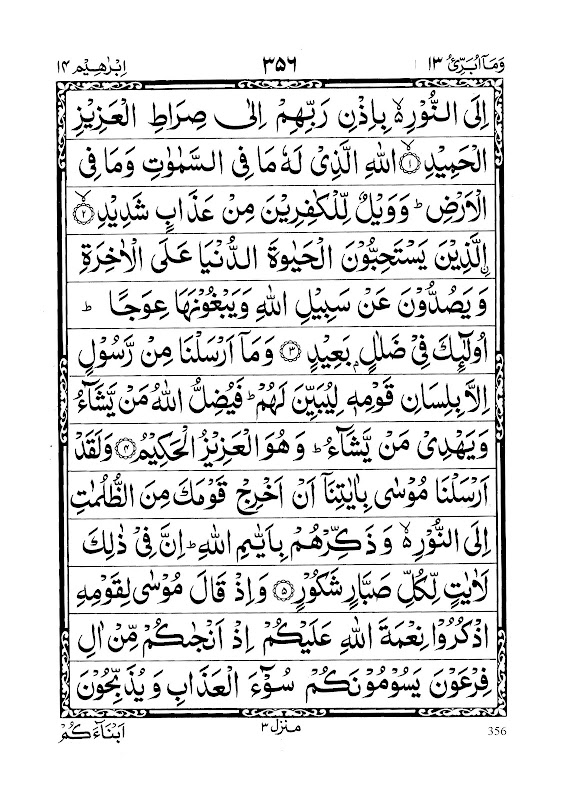 وَمَآ اُبَرِّئُ ١٣
٣٥٦
اِبْرٰهِيْم ١٤
اِلَى النُّوْرِ ۙ بِاِذْنِ رَبِّهِمْ اِلٰى صِرَاطِ الْعَزِيْزِ
الْحَمِيْدِ ۙ‏ ﴿١﴾ اللّٰهِ الَّذِىْ لَهٗ مَا فِى السَّمٰوٰتِ وَمَا فِى
الْاَرْضِ‌ ؕ وَوَيْلٌ لِّلْكٰفِرِيْنَ مِنْ عَذَابٍ شَدِيْدِ ۙ ﴿٢﴾
اۨلَّذِيْنَ يَسْتَحِبُّوْنَ الْحَيٰوةَ الدُّنْيَا عَلَى الْاٰخِرَةِ
وَيَصُدُّوْنَ عَنْ سَبِيْلِ اللّٰهِ وَيَبْغُوْنَهَا عِوَجًا ؕ
اُولٰٓٮِٕكَ فِىْ ضَلٰلٍۢ بَعِيْدٍ ﴿٣﴾ وَمَاۤ اَرْسَلْنَا مِنْ رَّسُوْلٍ
اِلَّا بِلِسَانِ قَوْمِهٖ لِيُبَيِّنَ لَهُمْ‌ؕ فَيُضِلُّ اللّٰهُ مَنْ يَّشَآءُ
وَيَهْدِىْ مَنْ يَّشَآءُ‌ ؕ وَهُوَ الْعَزِيْزُ الْحَكِيْمُ ﴿٤﴾ وَلَقَدْ
اَرْسَلْنَا مُوْسٰى بِاٰيٰتِنَاۤ اَنْ اَخْرِجْ قَوْمَكَ مِنَ الظُّلُمٰتِ
اِلَى النُّوْرِ ۙ وَذَكِّرْهُمْ بِاَيّٰٮمِ اللّٰهِ‌ؕ اِنَّ فِىْ ذٰلِكَ
لَاٰيٰتٍ لِّكُلِّ صَبَّارٍ شَكُوْرٍ ﴿٥﴾ وَاِذْ قَالَ مُوْسٰى لِقَوْمِهِ
اذْكُرُوْا نِعْمَةَ اللّٰهِ عَلَيْكُمْ اِذْ اَنْجٰٮكُمْ مِّنْ اٰلِ
فِرْعَوْنَ يَسُوْمُوْنَكُمْ سُوْٓءَ الْعَذَابِ وَ يُذَبِّحُوْنَ
اَبْنَآءَكُمْ
منزل ٣
356